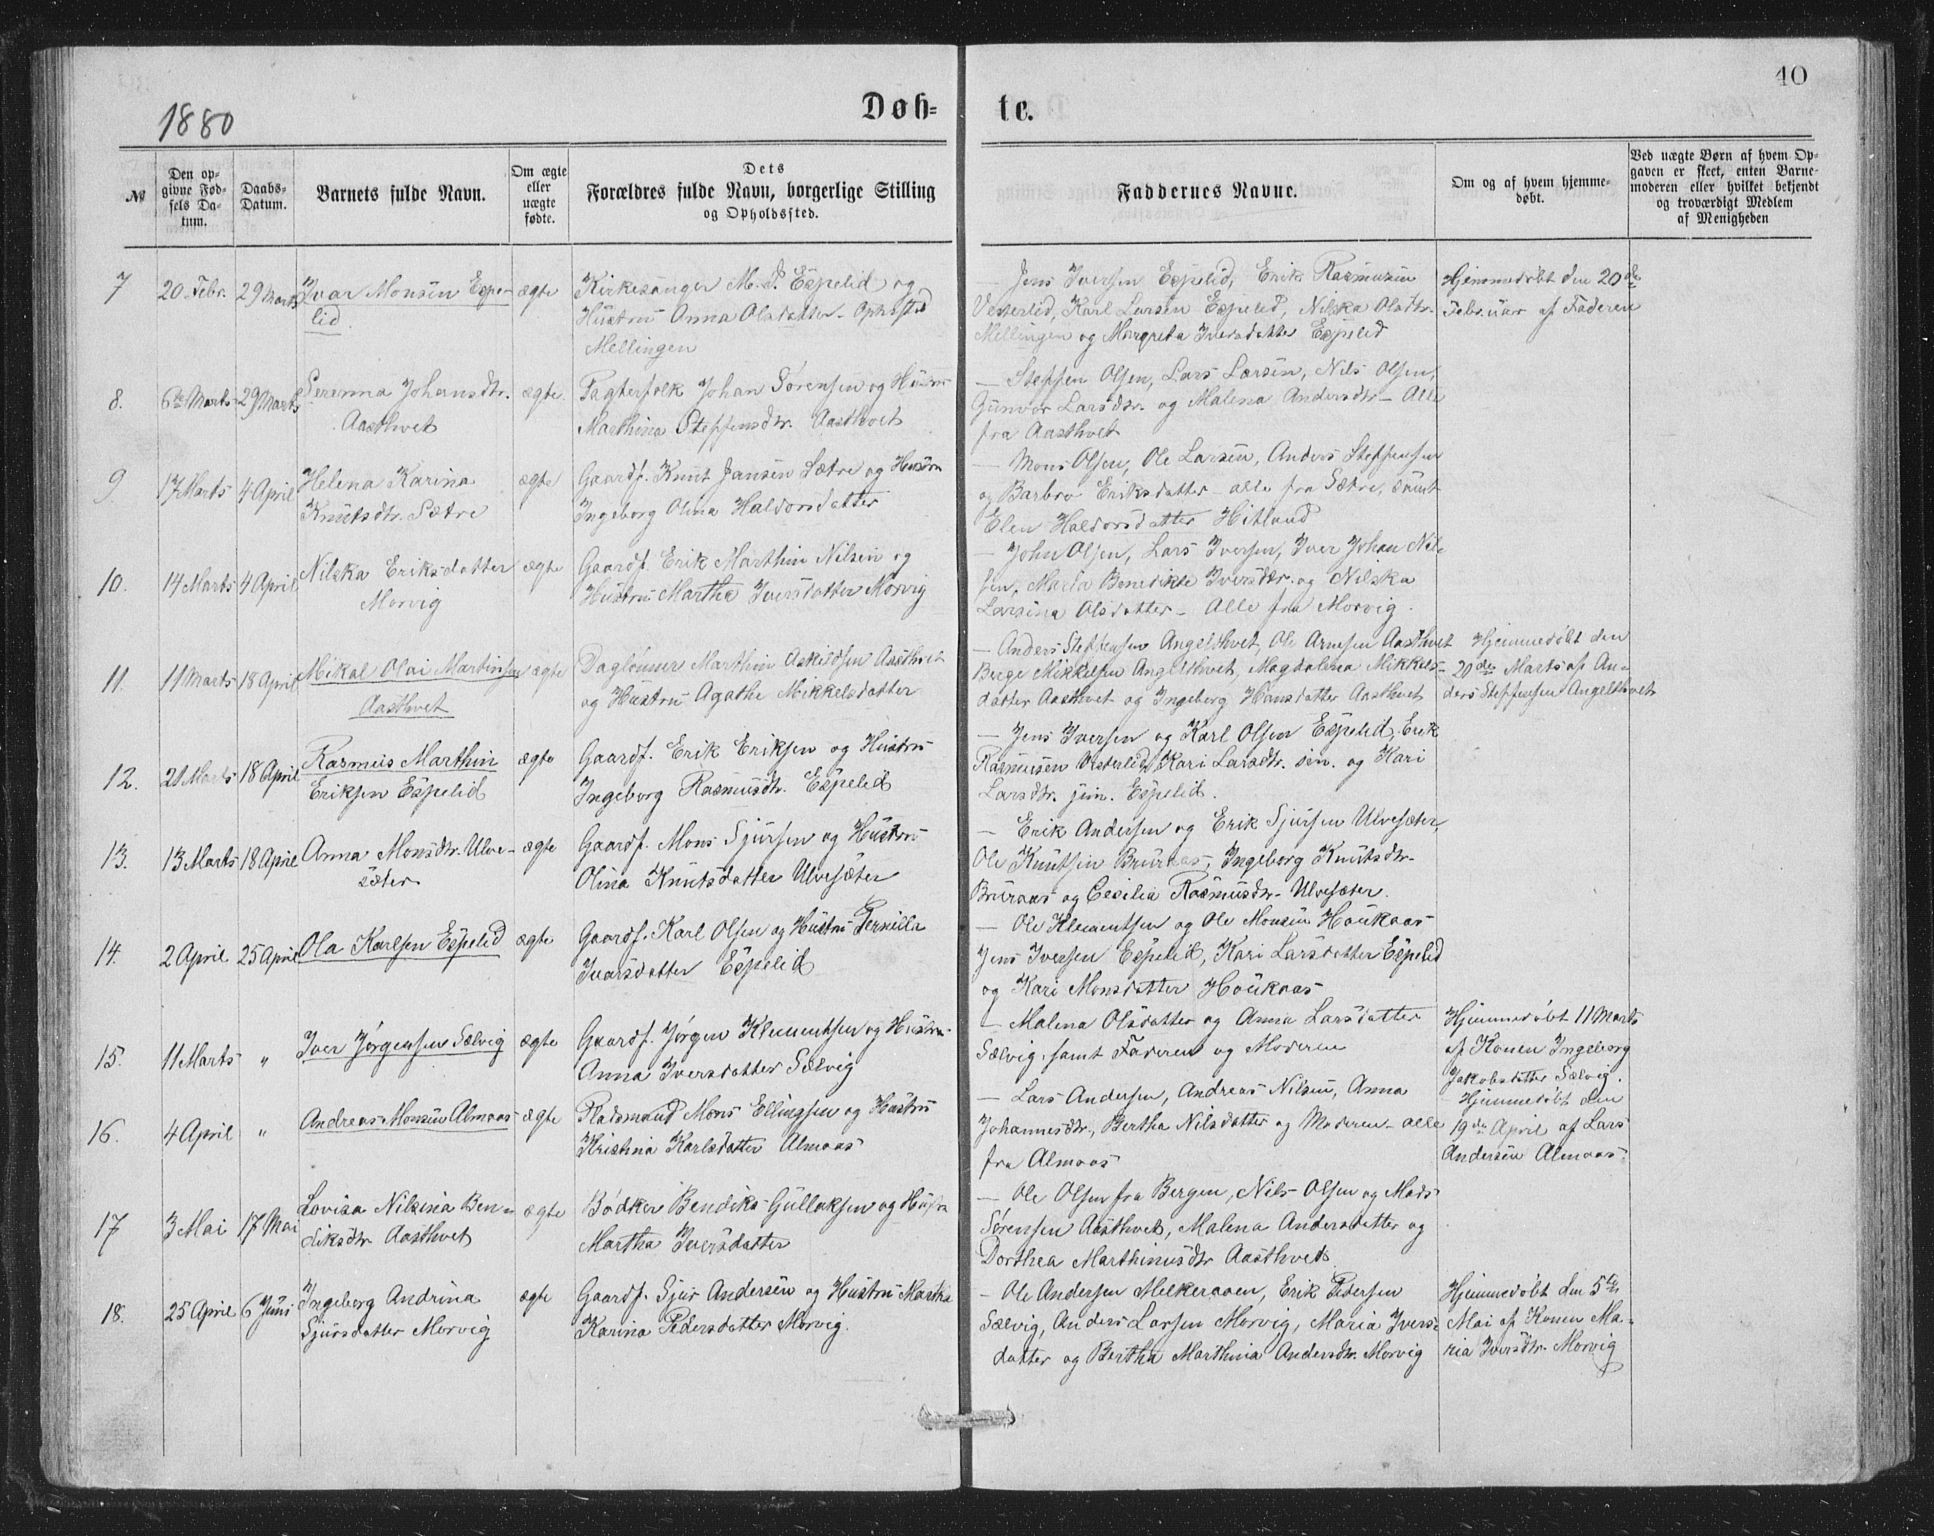 40
1880
Døb-
te.
№
Den op-
givne Fød-
sels Da-
tum.
Daabs-
Datum.
Barnets fulde Navn.
Om ægte
eller
uægte
fødte.
Dets
Forældres fulde Navn, borgerlige Stilling
og Opholdssted.
Faddernes Navne.
Om og af hvem hjemme-
døbt.
Ved uægte Børn af hvem Op-
gaven er skeet, enten Barne-
moderen eller hvilket bekjendt
og troværdigt Medlem
af Menigheden
7
20. Febr.
29 Marts
Ivar Monsen Espe-
lid.
ægte
Kirkesanger M. J. Espelid og
Hustru Anna Olsdatter - Opholdsted
Mellingen
- Jens Iversen Espelid, Erik Rasmusen
Vesterlid, Karl Larsen Espelid, Nilska Olsdtr.
Mellingen og Margreta Iversdatter Espelid
Hjemmedøbt den 20de
Februar af Faderen
8.
6te Marts
29 Marts
Serenna Johansdtr.
Aasthvet
ægte
Pagterfolk Johan Sørensen og Hustru
Marthina Steffensdtr. Aasthvet
- Steffen Olsen, Lars Larsen, Nils Olsen,
Gunvor Larsdtr. og Malena Andersdtr - Alle
fra Aasthvet
9.
17 Marts
4 April
Helena Karina
Knutsdtr. Sætre
ægte
Gaardf. Knut Jansen Sætre og Hustru
Ingeborg Olina Haldorsdatter
- Mons Olsen, Ole Larsen, Anders Steffensen
og Barbro Eriksdatter - alle fra Sætre, samt
Elen Haldorsdatter Hitland
10.
14 Marts
4 April
Nilska Eriksdatter
Morvig
ægte
Gaardf. Erik Marthin Nilsen og
Hustru Martha Iversdatter Morvig
- John Olsen, Lars Iversen, Iver Johan Nil-
sen, Marta Benedikte Iversdtr. og Nilska
Larsina Olsdatter - Alle fra Morvig.
11.
11 Marts
18 April
Mikal Olai Martinsen
Aasthvet
ægte
Daglønner Marthin Askildsen Aasthvet
og Hustru Agathe Mikkelsdatter
- Anders Steffensen Angelthvet, Ole Arnesen Aasthvet
Berge Mikkelsen Angelthvet, Magdalena Mikkels-
datter Aasthvet og Ingeborg Hansdatter Aasthvet
Hjemmedøbt den
20de Marts af An-
ders Steffensen Angelthvet
12.
21 Marts
18 April
Rasmus Marthin
Eriksen Espelid
ægte
Gaardf. Erik Eriksen og Hustru
Ingeborg Rasmusdtr. Espelid
- Jens Iversen og Karl Olsen Espelid, Erik
Rasmusen Vesterlid, Kari Larsdtr. sen. og Kari
Larsdtr. jun. Espelid.
13.
13 Marts
18 April
Anna Monsdtr. Ulve-
sæter
ægte
Gaardf. Mons Sjursen og Hustru
Olina Knutsdatter Ulvesæter
- Erik Andersen og Erik Sjursen Ulvesæter,
Ole Knutsen Bruraas, Ingeborg Knutsdtr.
Bruraas og Cecilia Rasmusdtr. Ulvesæter.
14.
2 April
25 April
Ola Karlsen Espelid
ægte
Gaardf. Karl Olsen og Hustru Pernilla
Ivarsdatter Espelid
- Ole Klementsen og Ole Monsen Houkaas
Jens Iversen Espelid, Kari Larsdatter Espelid
og Kari Monsdatter Houkaas
15.
11 Marts
"
Iver Jørgensen Sælvig
ægte
Gaardf. Jørgen Klementsen og Hustru
Anna Iversdatter Sælvig
- Malena Olsdatter og Anna Larsdatter
Sælvig, samt Faderen og Moderen
Hjemmedøbt 11 Marts
af Konen Ingeborg
Jakobsdatter Sælvig.
16.
4 April
"
Andreas Monsen Almaas
ægte
Pladsmand Mons Ellingsen og Hustru
Kristina Karlsdatter Almaas
- Lars Andersen, Andreas Nilsen, Anna
Johannesdtr., Bertha Nilsdatter og Moderen - alle
fra Almaas
Hjemmedøbt den
19de April af Lars
Andersen Almaas.
17
3 Mai
17 Mai
Lovisa Nilsina Ben-
diksdtr Aasthvet
ægte
Bødker Bendiks Gullaksen og Hustru
Martha Iversdatter
- Ole Olsen fra Bergen, Nils Olsen og Mads
Sørensen Aasthvet, Malena Andersdatter og
Dorthea Marthinusdtr Aasthvet.
18.
25 April
6 Juni
Ingeborg Andrina
Sjursdatter Morvig
ægte
Gaardf. Sjur Andersen og Hustru Martha
Karina Pedersdatter Morvig.
- Ole Andersen Melkeraaen, Erik Pedersen
Sælvig, Anders Larsen Morvig, Maria Ivers-
datter og Bertha Marthina Andersdtr. Morvig
Hjemmedøbt den 5te
Mai af Konen Ma-
ria Iversdtr. Morvig